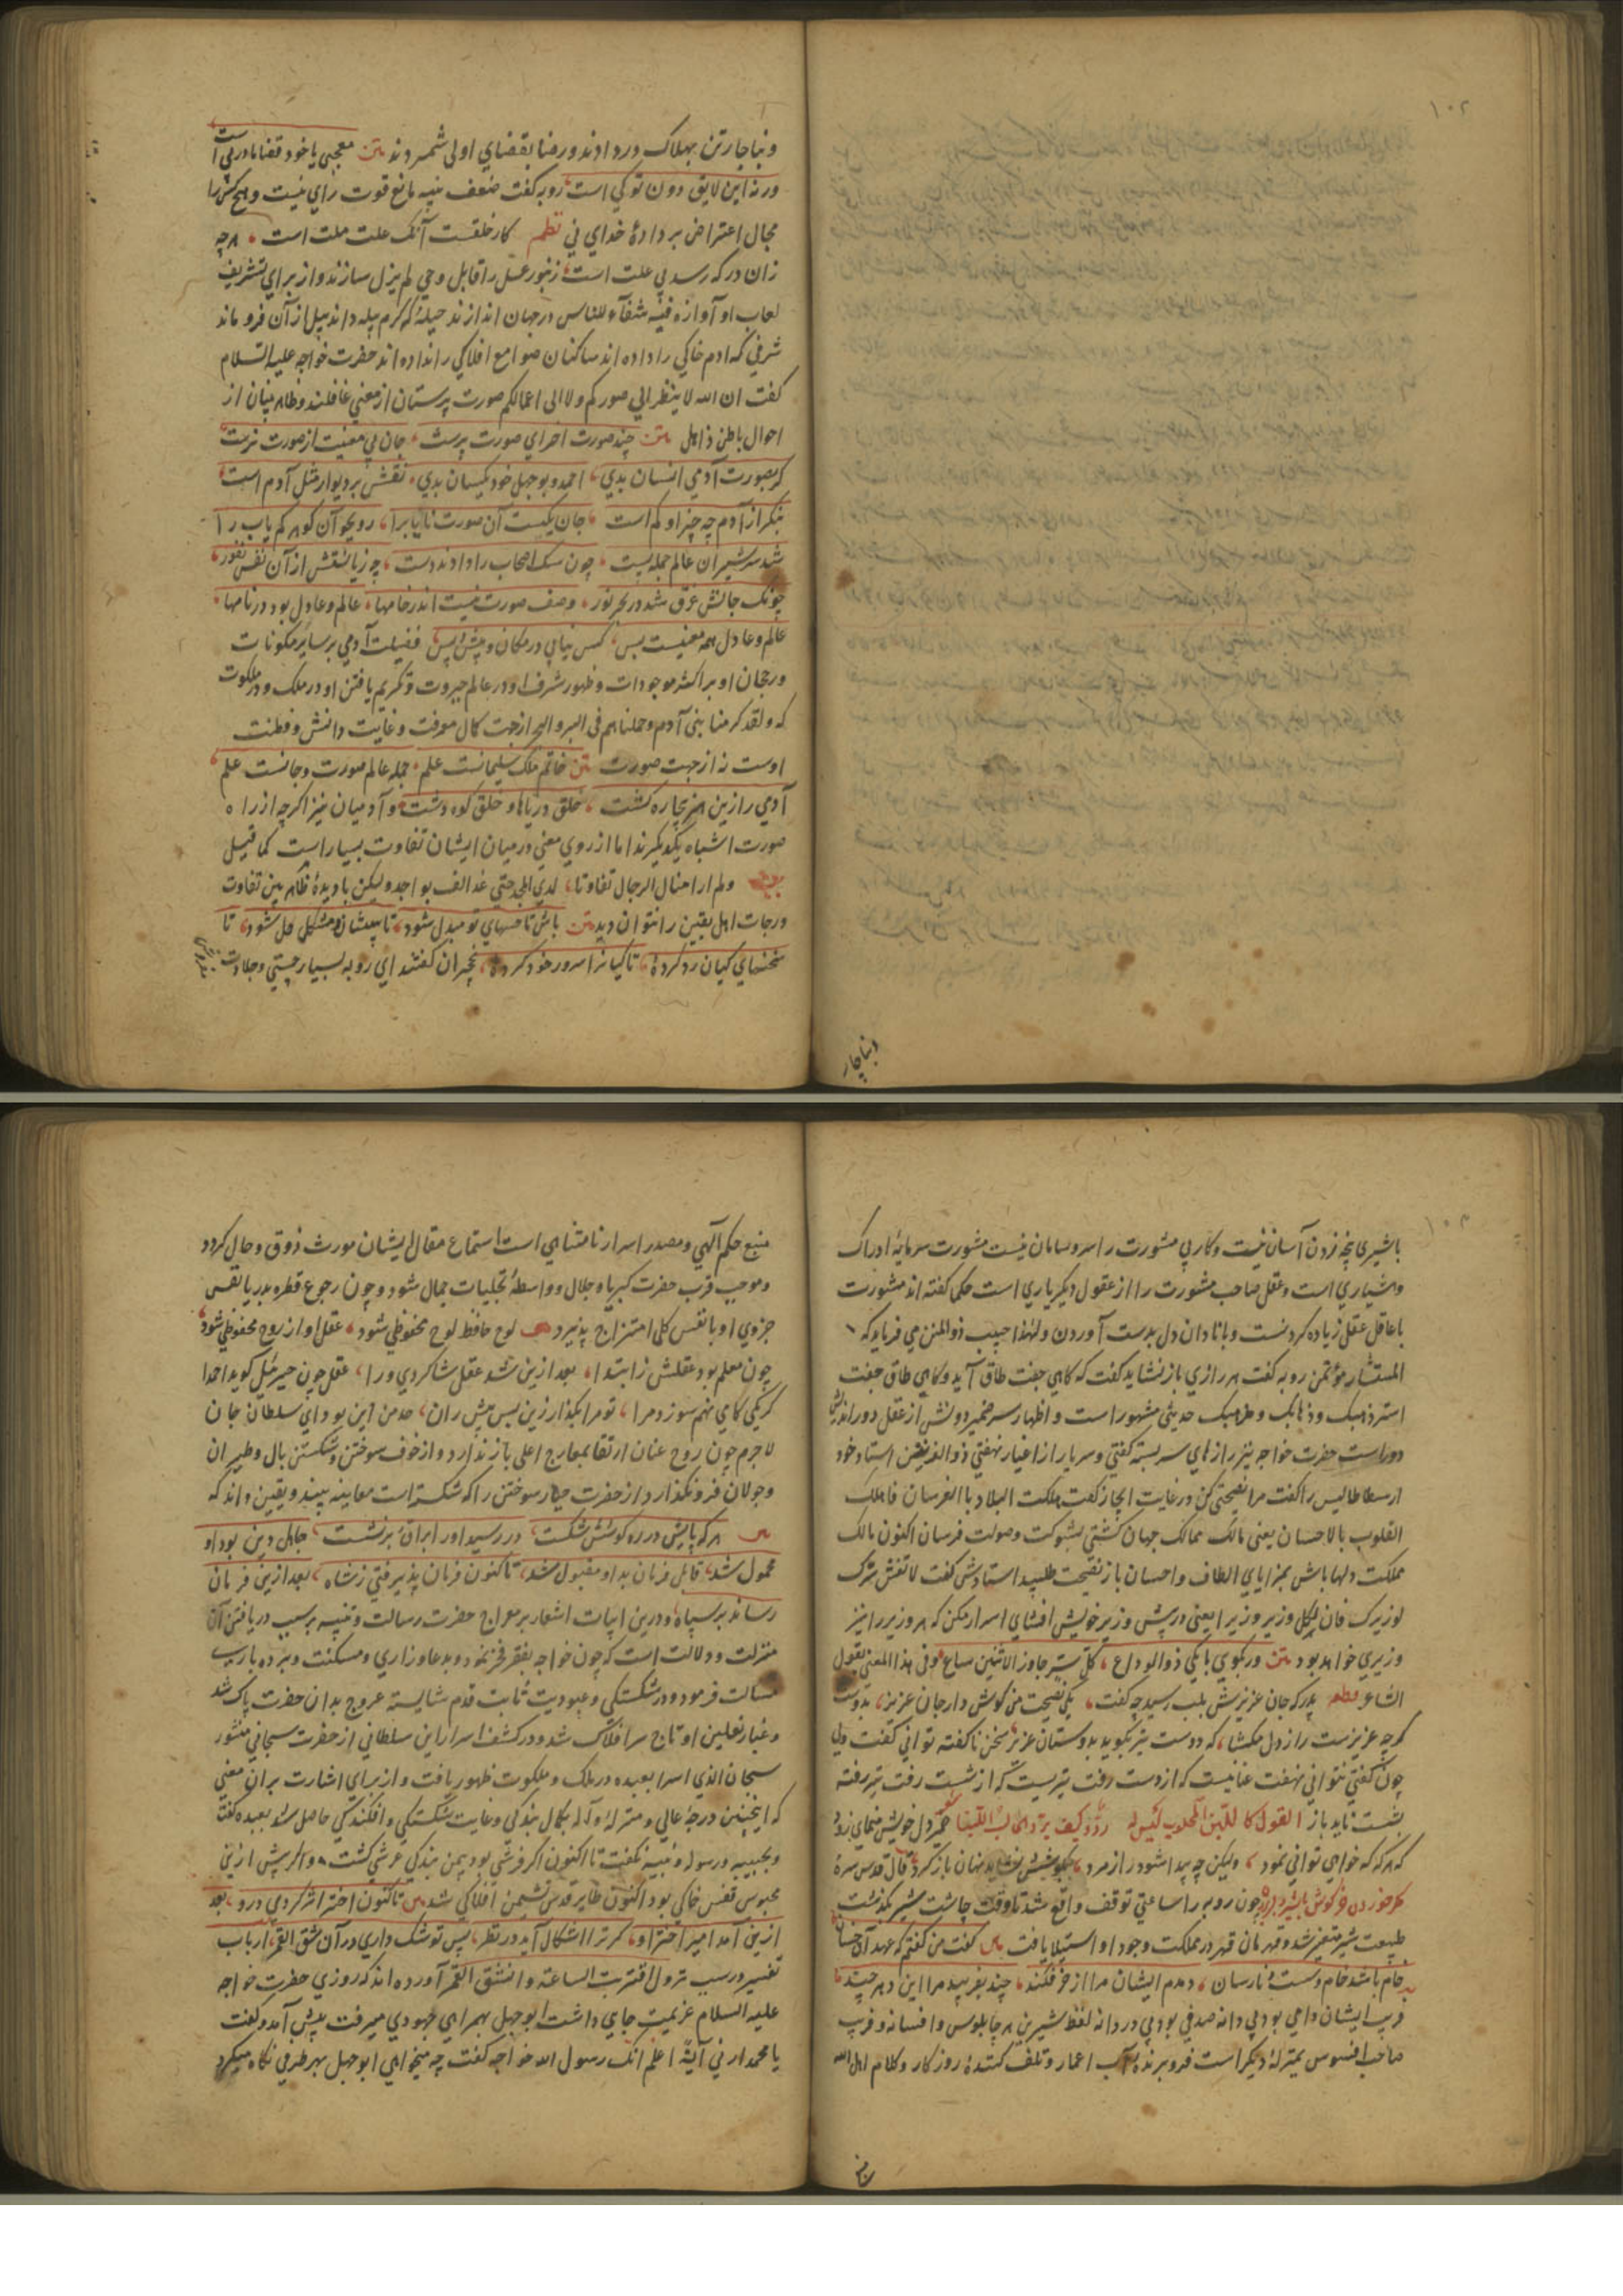 ۱۰۲
وبناچار تن بهلاک در دادند و رضا بقضای اولی شمردند متن معجبی یا خود قضا مادر پی است
ور نه این لایق دون تو کی است روبه کفت ضعف بنیه مانع قوت رای نیست وهیچ کس را
مجال اعتراض بر دادهٔ خدای نی نظم کار خلقست آنک علت علت است هرچه
زان درکه رسد بی علت است زنبور عسل را قابل وحی لم یزل سازند و از برای تشریف
لعاب او آوازه فیه شفآء للناس در جهان اندازند حیلهٔ که کرم پیله داند پیل از آن فرو ماند
شرفی که ادم خاکی را داده اند ساکنان صوامع افلاکی را نداده اند حضرت خواجه علیه السلام
کفت ان الله لا ینظر الی صورکم ولا الی اعمالکم صورت پرستان از معنی غافلند و ظاهر بینان از
احوال باطن ذاهل متن چند صورت اخر ای صورت پرست جان بی معنیت از صورت نرست
کر بصورت آدمی انسان بدی احمد و بوجهل خود یکسان بدی نقش بر دیوار مثل آدم است
بنکر از آدم چه چیز او کم است جان یکیست آن صورت نایاب را رو بجو آن کوهر کم یاب را
شد سر شیران عالم جمله پست چون سک اصحاب را دادند دست چه زیانستش از آن نقش نفور
چونک جانش غرق شد در بحر نور وصف صورت نیست اندر خامها عالم و عادل بود در نامها
عالم و عادل همه معنیست بس کس نیابی در مکان و پیش و پس فضیلت آدمی بر سایر مکونات
ورجحان او بر اکثر موجودات و ظهور شرف او در عالم جبروت و تکریم یافتن او در ملک و در ملکوت
که ولقد کرمنا بنی آدم وحملناهم فی البر والبحر از جهت کمال معرفت و غایت دانش و فطنت
اوست نه از جهت صورت متن خاتم ملک سلیمانست علم جمله عالم صورت و جانست علم
آدمی را زین هنر بیچاره کشت خلق دریاها و خلق کوه و دشت و آدمیان نیز اکرچه از راه
صورت اشباه یکدیکرند اما از روی معنی در میان ایشان تفاوت بسیار است کما قیل
ولم ار امثال الرجال تفاوتا لدی المجد حتی عد الف بواحد ولیکن با دیدهٔ ظاهر بین تفاوت
درجات اهل یقین را نتوان دید متن باش تا حسهای تو مبدل شود تا ببینیشان و مشکل حل شود تا
سخنهای کیان رد کردهٔ تا کیانرا سرور خود کردهٔ نخچیران کفتند ای روبه بسیار چستی و جلادت
وبناچار
۱۰۳
با شیری پنجه زدن آسان نیست و کار بی مشورت را سر و سامان نیست مشورت سرمایهٔ ادراک
وهشیاری است و عقل صاحب مشورت را از عقول دیکر یاری است حکما کفته اند مشورت
با عاقل عقل زیاده کردنست و با نادان دل بدست آوردن ولهذا حبیب ذو المنن می فرماید که
المستشار مؤتمن روبه کفت هر رازی باز نشاید کفت که کاهی جفت طاق آید و کاهی طاق جفت
استر ذهبک وذهابک ومذهبک حدیثی مشهور است و اظهار سر ضمیر و دلش از عقل دور اندیش
دور است حضرت خواجه نیز رازهای سر بسته کفتی و سر یار از اغیار نهفتی ذو القرنین استاد خود
ارسطاطالیس را کفت مرا نصیحتی کن در غایت ایجاز کفت ملکت البلاد بالفرسان فاملک
القلوب بالاحسان یعنی مالک ممالک جهان کشتی بشوکت و صولت فرسان اکنون مالک
مملکت دلها باش بمزایای الطاف و احسان باز نصیحت طلبید استادش کفت لا تفش سرک
لوزیرک فان لکل وزیر وزیرا یعنی در پیش وزیر خویش افشای اسرار مکن که هر وزیر را نیز
وزیری خواهد بود متن ور بکوی با یکی دو الوداع کل سر جاوز الاثنین شاع وفی هذا المعنی یقول
الشاعر قطعه پدر که جان عزیزش بلب رسید چه کفت یکی نصیحت من کوش دار جان عزیز بدوست
کرچه عزیزست راز دل مکشا که دوست نیز بکوید بدوستان عزیز سخن ناکفته توانی کفت ولی
چون کفتی نتوانی نهفت عنانیست که از دست رفت تیریست که از شست رفت تیر رفته
بشست ناید باز القول کاللبن المحلوب لیس له رد وکیف یرد الحالب اللبنا ضمیر دل خویش منمای زود
که هر که که خواهی توانی نمود ولیکن چو پیدا شود راز مرد بکوشش نشاید نهان باز کرد قال قدس سره
مکر خرکوش با شیر چون روبه را ساعتی توقف واقع شد تا وقت چاشت شیر بکذشت
طبیعت شیر متغیر شد و قهرمان قهر در مملکت وجود او استیلا یافت متن کفت من کفتم که عهد آن خسان
خام باشد خام و سست و نارسان دمدمه ایشان مرا از خر فکند چند بفریبد مرا این دهر چند
فریب ایشان دامی بود بی دانه صدفی بود بی دردانه لفظ شیرین هر چاپلوس و افسانه و فریب
صاحب افسوس بمنزلهٔ دیکر است فرو برنده آب اعمار و تلف کنندهٔ روزکار و کلام اهل الله
منبع حکم الهی و مصدر اسرار نامتناهی است استماع مقال ایشان مورث ذوق و حال کردد
وموجب قرب حضرت کبریا و جلال و واسطهٔ تجلیات جمال شود و چون رجوع قطره بدریا نفس
جزوی او با نفس کلی امتزاج پذیرد لوح حافظ لوح محفوظی شود عقل او از روح محفوظی شود
چون معلم بود عقلش ز ابتدا بعد ازین شد عقل شاکردی ورا عقل چون جبرئیل کوید احمدا
کر یکی کامی نهم سوزد مرا تو مرا بکذار زین پس پیش ران حد من این بود ای سلطان جان
لاجرم چون روح عنان ارتقا بمعارج اعلی باز ندارد و از خوف سوختن و شکستن بال و طیران
وجولان فرو نکذارد از حضرت جبار سوختن را که شکستست معاینه بیند و یقین داند که
متن هر که پایش در ره کوشش شکست در رسید اورا براق و بر نشست حامل دین بود او
محمول شد قابل فرمان بد او مقبول شد تا کنون فرمان پذیرفتی ز شاه بعد ازین فرمان
رساند بر سپاه و درین ابیات اشعار بر معراج حضرت رسالت و تنبیه بر سبب دریافتن آن
منزلت و دلالت است که چون خواجه بفقر فخر نمود و بدعا و زاری و مسکنت و برده باری
مسالت فرمود و در شکستکی و عبودیت ثابت قدم شایسته عروج بدان حضرت پاک شد
وغبار نعلین او تاج سر افلاک شد و در کشف اسرار این سلطانی از حضرت سبحانی منشور
سبحان الذی اسرا بعبده در ملک و ملکوت ظهور یافت و از برای اشارت بران معنی
که اینچنین درجهٔ عالی و منزلهٔ والا بکمال بندکی و غایت شکستکی و افکندکی حاصل شد بعبده کفت
وبحبیبه ورسوله ونبیه نکفت تا اکنون اکر فرشی بود بیمن بندکی عرشی کشت و اکر پیش ازین
محبوس قفس خاکی بود اکنون طایر قدس نشیمن افلاکی شد متن تا کنون اختر اثر کردی درو بعد
ازین آمد امیر اختر او کر ترا اشکال آید در نظر پس تو شک داری در آن شق القمر ارباب
تفسیر در سبب نزول اقتربت الساعة وانشق القمر آورده اند که روزی حضرت خواجه
علیه السلام عزیمت جای داشت ابوجهل بهمراهی جهودی میرفت پیش آمد و کفت
یا محمد ارنی آیة اعلم انک رسول الله خواجه کفت چه میخواهی ابوجهل بهر طرفی نکاه میکرد